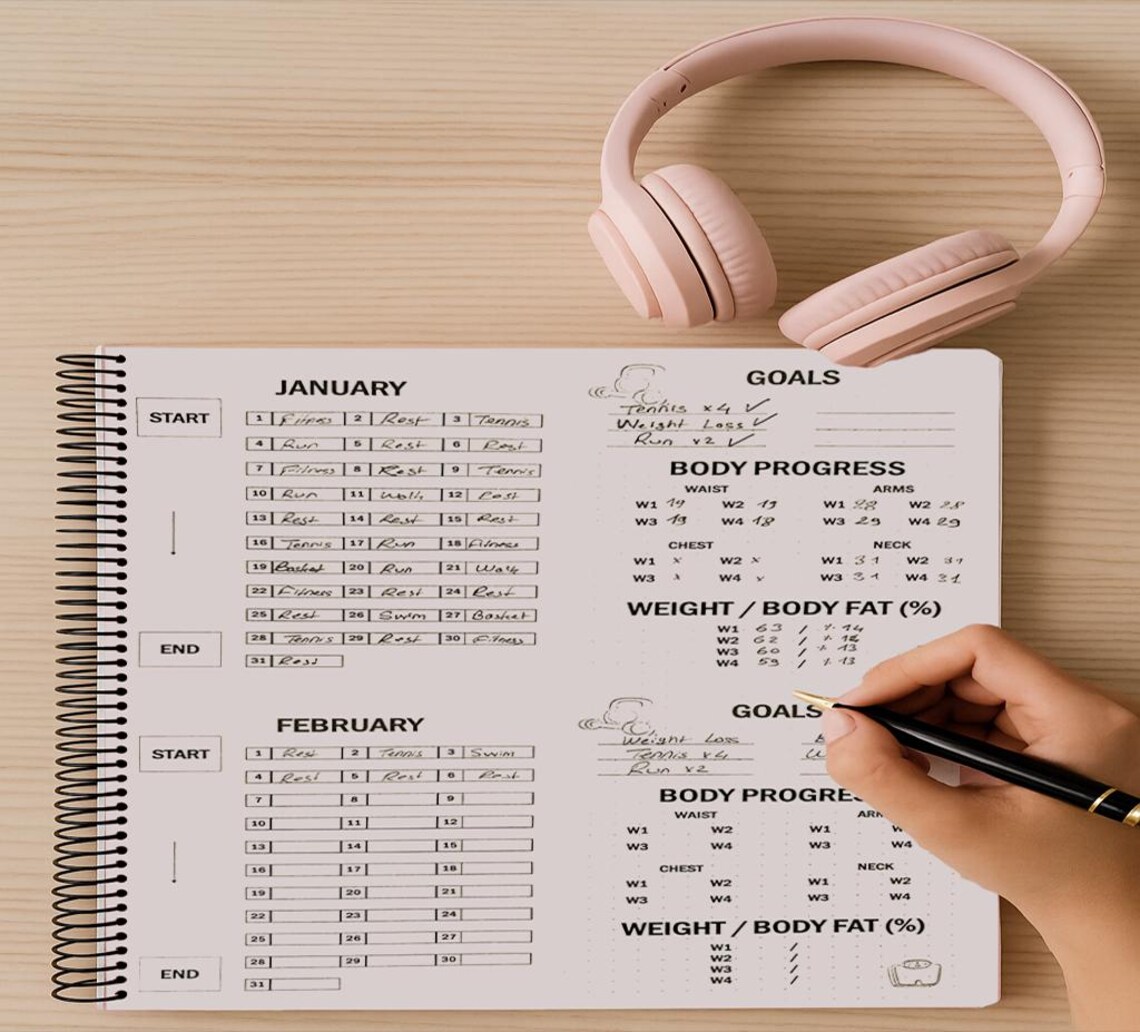 JANUARY
START
1 Fitness 2 Rest 3 Tennis
4 Run 5 Rest 6 Rest
7 Fitness 8 Rest 9 Tennis
10 Run 11 Walk 12 Rest
13 Rest 14 Rest 15 Rest
16 Tennis 17 Run 18 Fitness
19 Basket 20 Run 21 Walk
22 Fitness 23 Rest 24 Rest
25 Rest 26 Swim 27 Basket
28 Tennis 29 Rest 30 Fitness
31 Rest
END
GOALS
Tennis x4 ✓
Weight Loss ✓
Run x2 ✓
BODY PROGRESS
WAIST ARMS
W1 19 W2 19 W1 28 W2 28
W3 19 W4 18 W3 29 W4 29
CHEST NECK
W1 x W2 x W1 31 W2 31
W3 x W4 x W3 31 W4 31
WEIGHT / BODY FAT (%)
W1 63 / % 14
W2 62 / %
W3 60 / % 13
W4 59 / % 13
FEBRUARY
START
1 Rest 2 Tennis 3 Swim
4 Rest 5 Rest 6 Rest
7 8 9
10 11 12
13 14 15
16 17 18
19 20 21
22 23 24
25 26 27
28 29 30
31
END
GOALS
Weight Loss
Tennis x4
Run x2
BODY PROGRE
WAIST
W1 W2 W1
W3 W4 W3 W4
CHEST NECK
W1 W2 W1 W2
W3 W4 W3 W4
WEIGHT / BODY FAT (%)
W1 /
W2 /
W3 /
W4 /